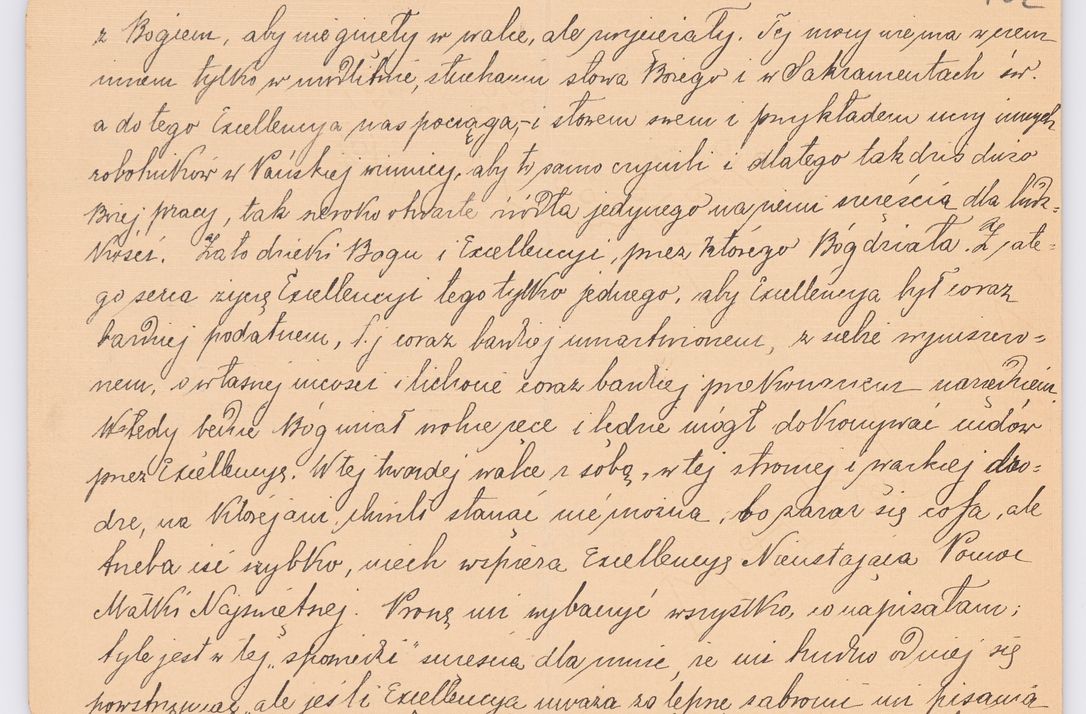 z Bogiem, aby nie ginęły w walce, ale zwyciężały. Tej mocy nie ma w czem
innem tylko w modlitwie, słuchaniu słowa Bożego i w Sakramentach św.
a do tego Excellencya nas pociąga, – i słowem swem i przykładem uczy innych
robotników w Pańskiej winnicy, aby to samo czynili i dlatego tak dziś dużo
Bożej pracy, tak szeroko otwarte źródła jedynego na ziemi szczęścia dla ludz-
kości. Za to dzięki Bogu i Excellencyi, przez którego Bóg działa. Z całe-
go serca życzę Excellencyi tego tylko jednego, aby Excellencya był coraz
bardziej podatnem, t.j coraz bardziej umartwionem, z siebie wyniszczo-
nem, o własnej nicości i lichocie coraz bardziej przekonanem narzędziem.
Wtedy będzie Bóg miał wolne ręce i będzie mógł dokonywać cudów
przez Excellencyę. W tej twardej walce z sobą, w tej stromej i wązkiej dro-
dze, na której ani chwili stanąć nie można, bo zaraz się cofa, ale
trzeba iść szybko, niech wspiera Excellencyę Nieustająca Pomoc
Matki Najświętszej. Proszę mi wybaczyć wszystko, co napisałam;
tyle jest w tej „spowiedzi" szczęścia dla mnie, że mi trudno od niej się
powstrzymać, ale jeśli Excellencya uważa za lepsze zabronić mi pisania